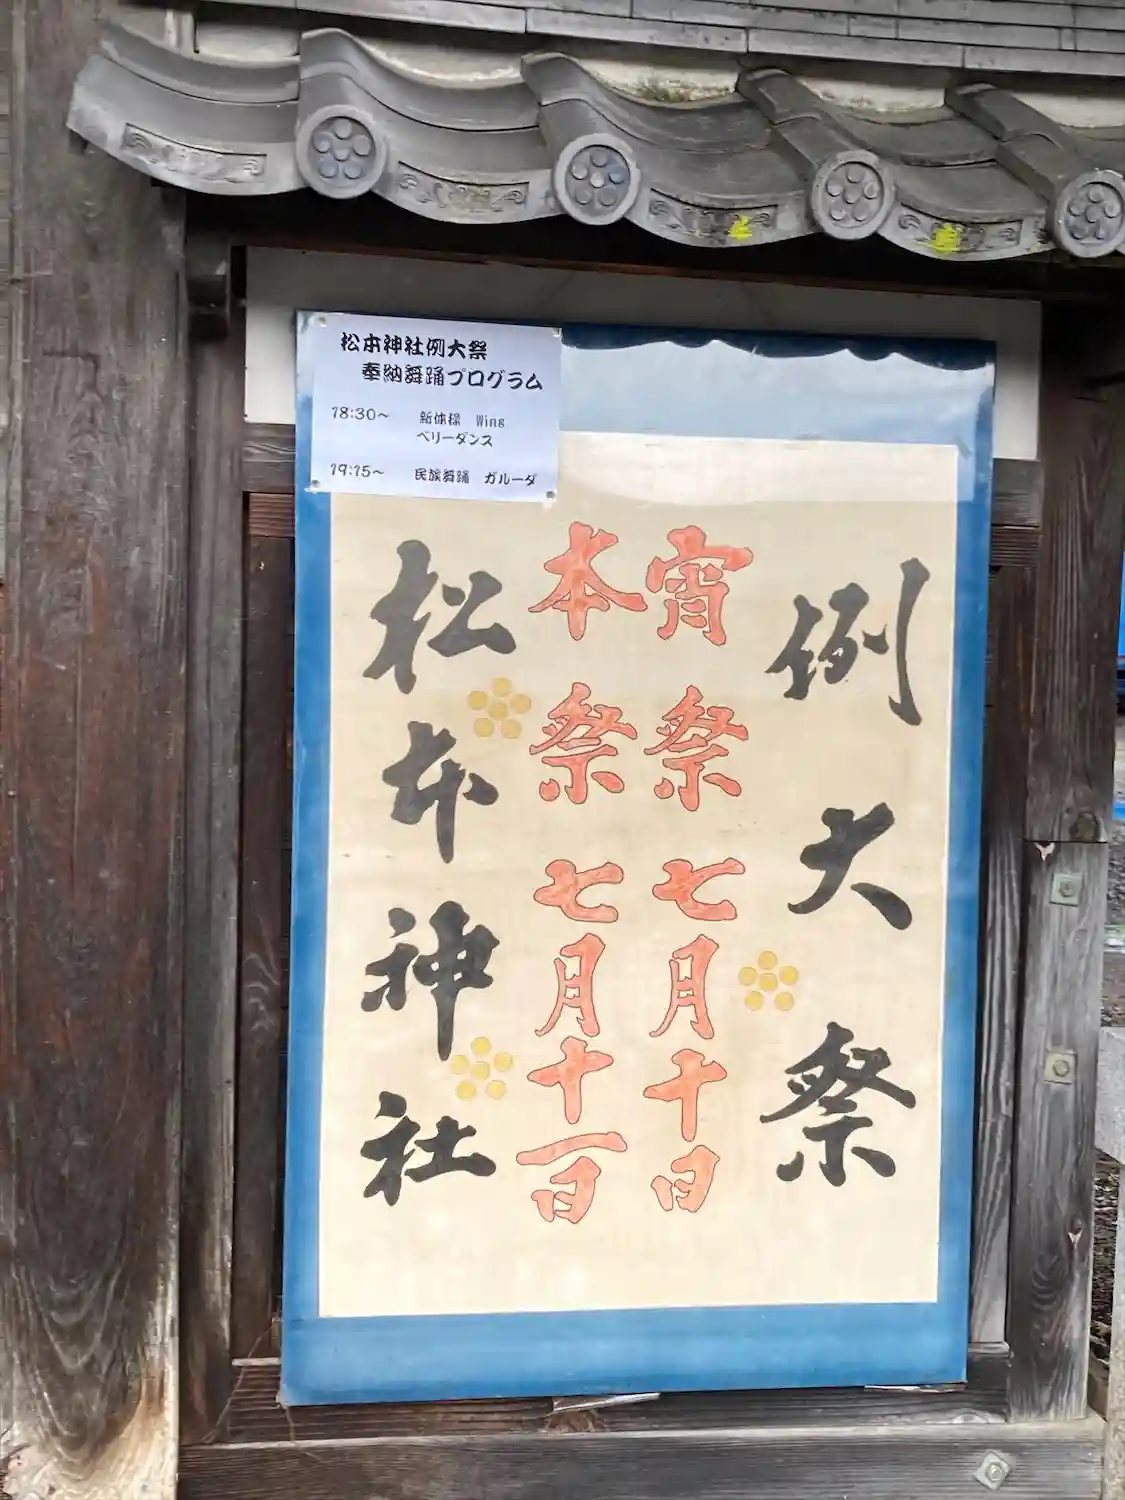 松本神社例大祭
奉納舞踊プログラム
18:30～ 新体操 Wing
ベリーダンス
19:15～ 民族舞踊 ガルーダ
例大祭
宵祭 七月十日
本祭 七月十一日
松本神社